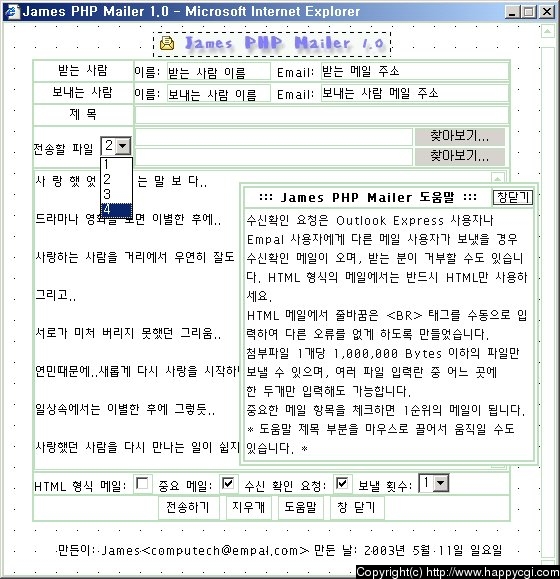 James PHP Mailer 1.0 - Microsoft Internet Explorer
James PHP Mailer 1.0
받는 사람 이름: 받는 사람 이름 Email: 받는 메일 주소
보내는 사람 이름: 보내는 사람 이름 Email: 보내는 사람 메일 주소
제 목
전송할 파일 2 찾아보기...
찾아보기...
1
2
3
4
사 랑 했 었 는 말 보 다..
드라마나 영화를 보면 이별한 후에..
사랑하는 사람을 거리에서 우연히 잘도
그리고..
서로가 미처 버리지 못했던 그리움..
연민때문에..새롭게 다시 사랑을 시작하
일상속에서는 이별한 후에 그렇듯..
사랑했던 사람을 다시 만나는 일이 쉽지
::: James PHP Mailer 도움말 ::: 창닫기
수신확인 요청은 Outlook Express 사용자나
Empal 사용자에게 다른 메일 사용자가 보냈을 경우
수신확인 메일이 오며, 받는 분이 거부할 수도 있습니
다. HTML 형식의 메일에서는 반드시 HTML만 사용하
세요.
HTML 메일에서 줄바꿈은 <BR> 태그를 수동으로 입
력하여 다른 오류를 없게 하도록 만들었습니다.
첨부파일 1개당 1,000,000 Bytes 이하의 파일만
보낼 수 있으며, 여러 파일 입력란 중 어느 곳에
한 두개만 입력해도 가능합니다.
중요한 메일 항목을 체크하면 1순위의 메일이 됩니다.
* 도움말 제목 부분을 마우스로 끌어서 움직일 수도
있습니다. *
HTML 형식 메일: 중요 메일: 수신 확인 요청: 보낼 횟수: 1
전송하기 지우개 도움말 창 닫기
만든이: James<computech@empal.com> 만든 날: 2003년 5월 11일 일요일
Copyright(c) http://www.happycgi.com